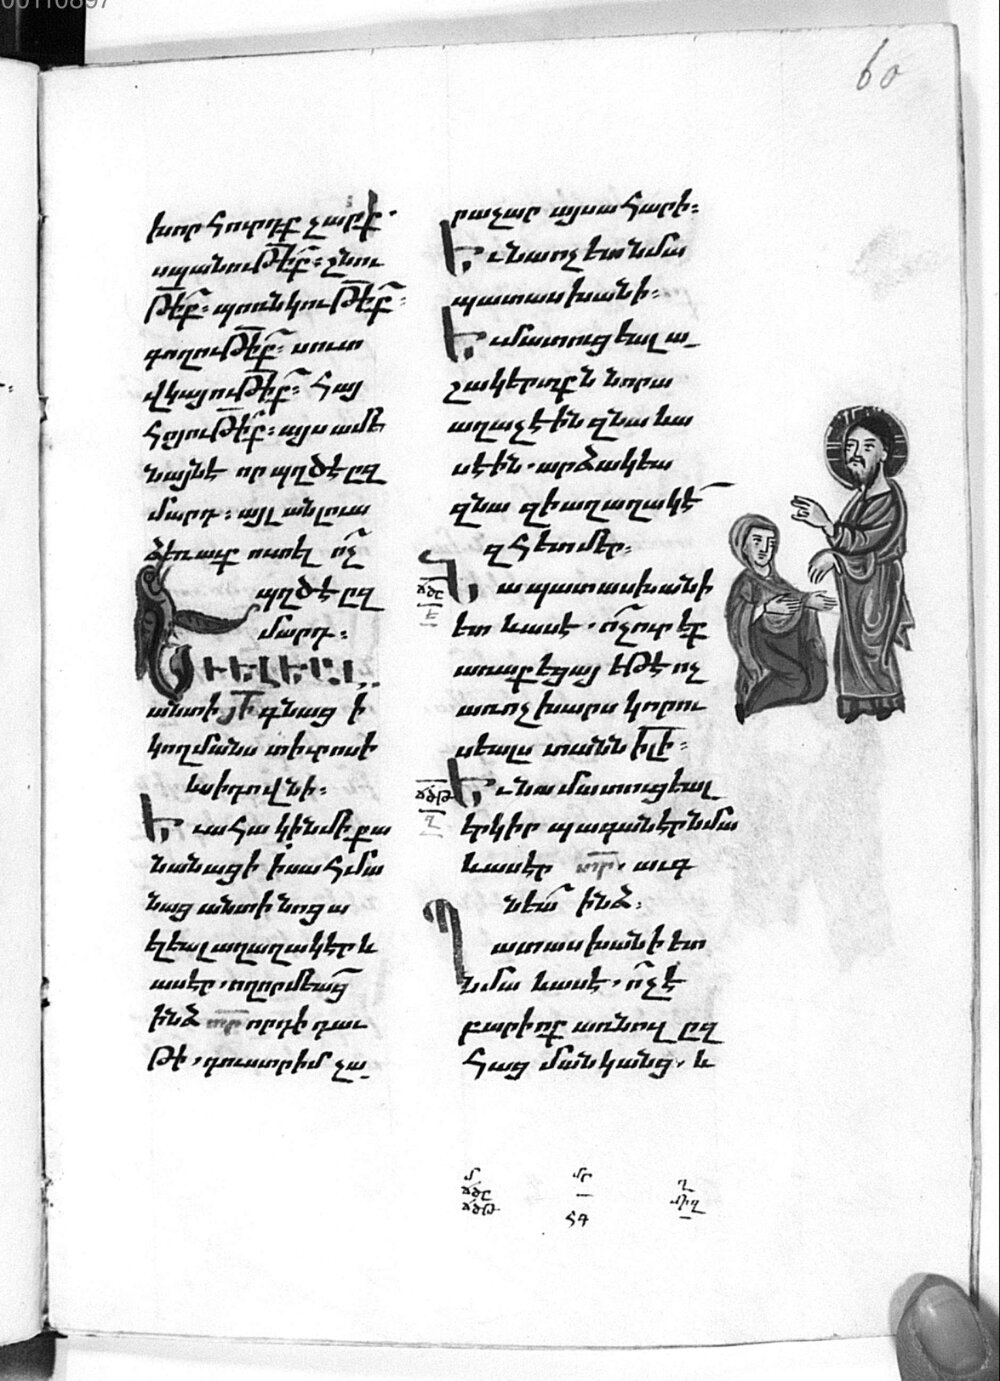 60
խորհուրդք չարք.
սպանութիւնք. շնու
թիւնք. պոռնկութիւնք.
գողութիւնք. սուտ
վկայութիւնք. հայ
հոյութիւնք. այս ամե
նայն է որ պղծէ զ
մարդ. այլ անլուա
ձեռաք ուտել ոչ
պղծէ զ
մարդ։
ԵՒ ԵԼԵԱԼ
անտի յս գնաց ի
կողմանս տիւրոսի
և սիդովնի։
Եւ ահա կին մի քա
նանացի ի սահմա
նաց անտի նոցա
ելեալ աղաղակէր և
ասէր. ողորմեաց
ինձ տր որդի դաւ
թի. դուստր իմ չա
րաչար այսահարի։
Եւ նա ոչ ետ նմա
պատասխանի։
Եւ մատուցեալ ա
շակերտքն նորա
աղաչէին զնա և
ասէին. արձակեա
զնա զի աղաղակէ
զհետ մեր։
Նա պատասխանի
ետ և ասէ. ոչ ուրեք
առաքեցայ եթէ ոչ
առ ոչխարս կորու
սեալս տանն իլի։
Եւ նա մատուցեալ
երկիր պագանէր նմա
և ասէր տր. աւգ
նեա ինձ։
Պատասխանի ետ
նմա և ասէ. ոչ է
բարիոք առնուլ զ
հաց մանկանց. և